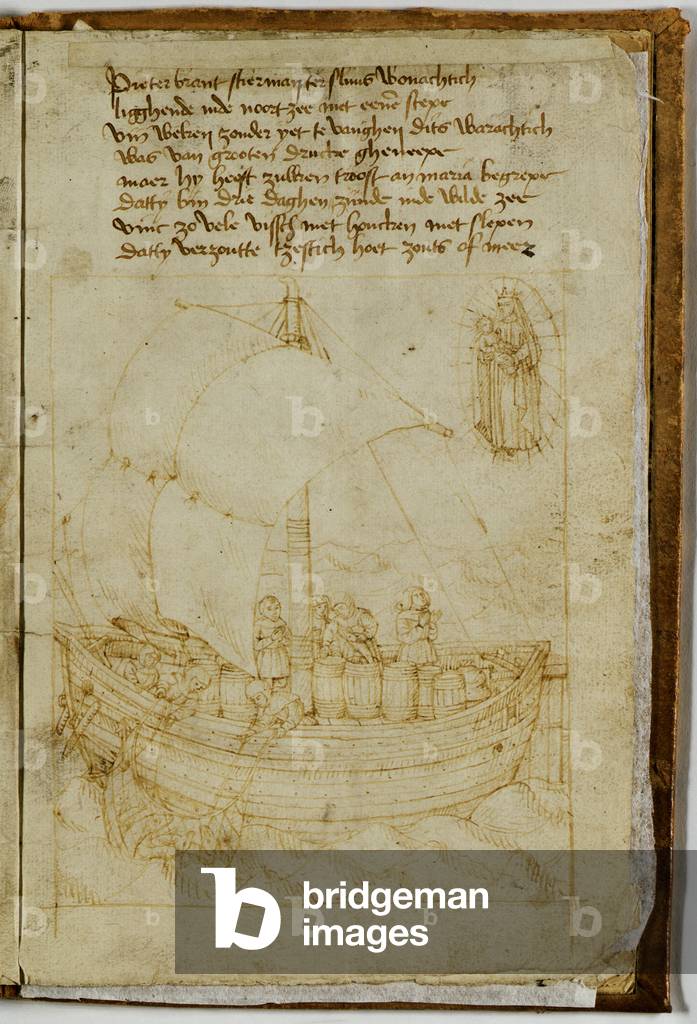 Pieter brant stierman ter sluus wonachtich
ligghende inde noort zee met eenē scepe
viii weken zonder yet te vanghen dits warachtich
was van grooten drucke gheneepe
maer hy heeft zulken troost an maria begrepe
datty bin drie daghen zijnde inde wilde zee
vinc zo vele visch met houcken met slepen
datty verzoutte tzestich hoet zouts of meer
b bridgeman images